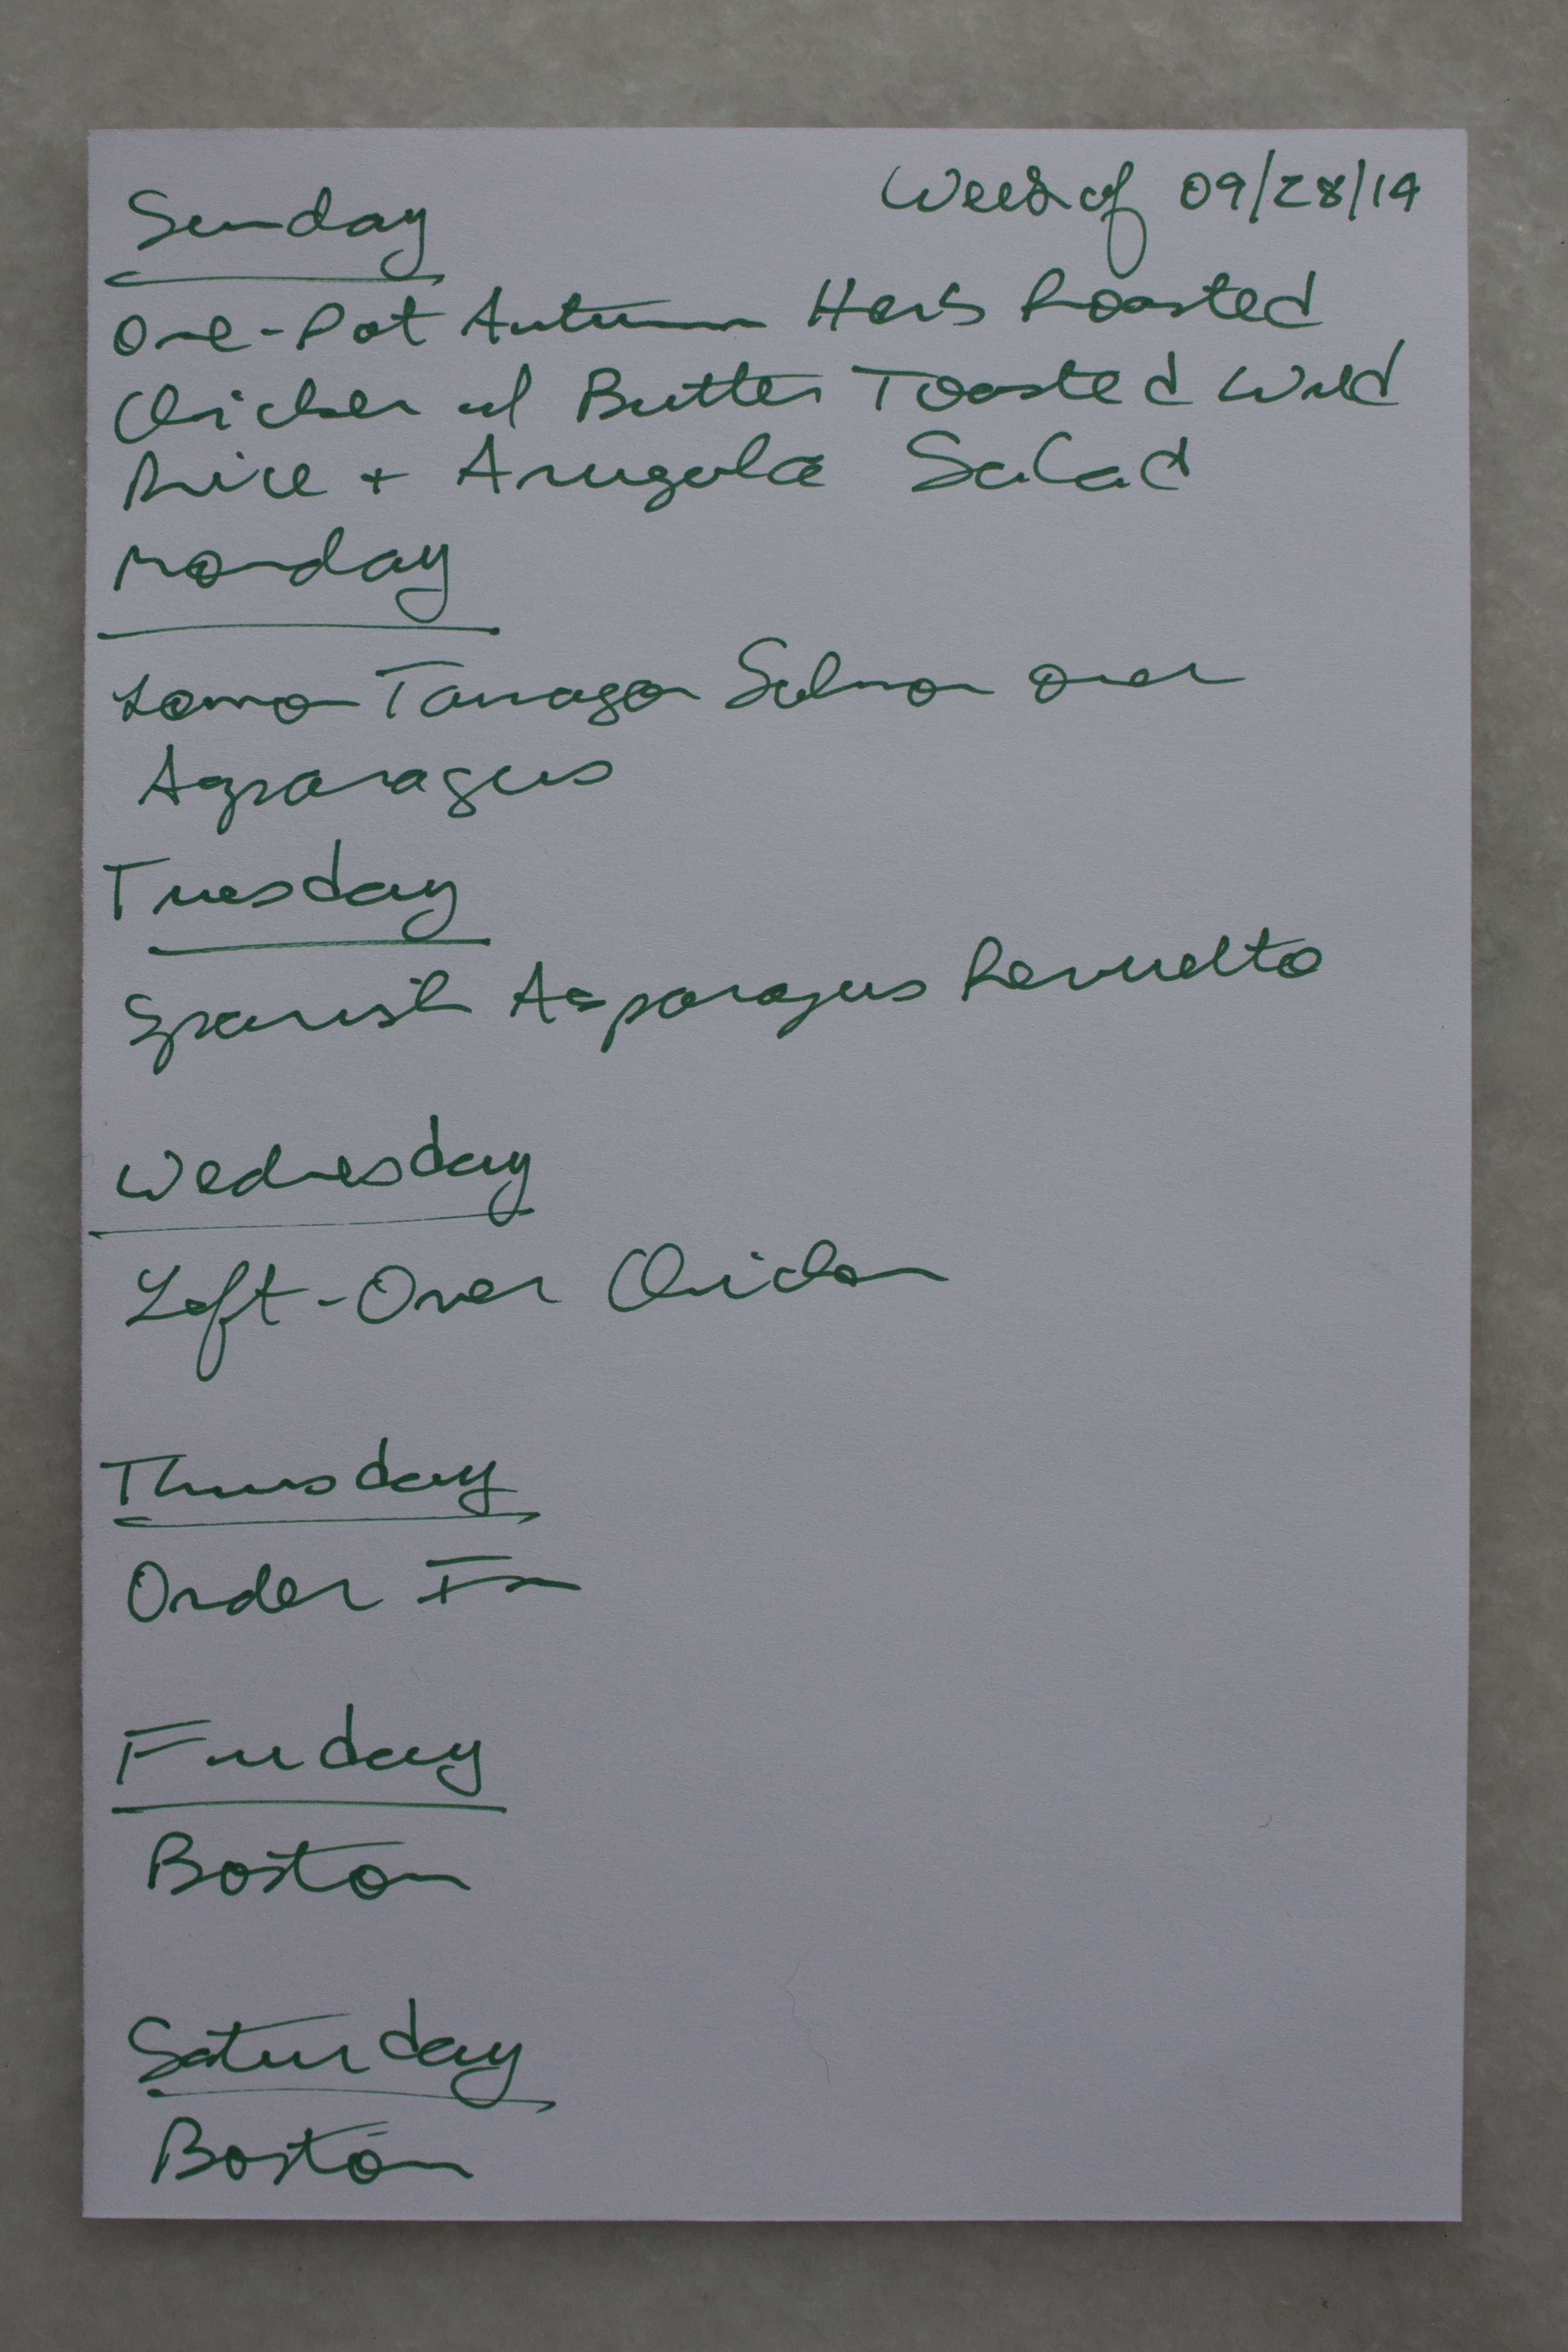 Week of 09/28/14
Sunday
One-Pot Autumn Herb Roasted
Chicken w/ Butter Toasted Wild
Rice + Arugula Salad
Monday
Lemon Tarragon Salmon over
Asparagus
Tuesday
Spanish Asparagus Revuelto
Wednesday
Left-Over Chicken
Thursday
Order In
Friday
Boston
Saturday
Boston